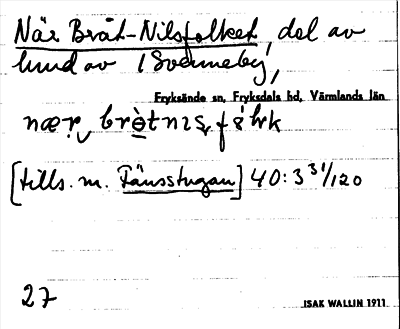 När Bråt-Nilsfolket, del av
lund av i Svenneby,
Fryksände sn, Fryksdals hd, Värmlands län
[tills. m. Fänsstugan] 40:3 31/120
27
ISAK WALLIN 1911